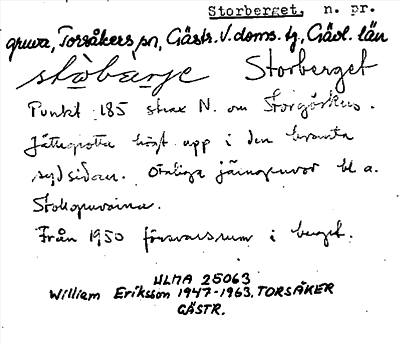 Storberget, n. pr.
gruva, Torsåkers sn, Gästr. V. doms. tg, Gävl. län
Storberget
Punkt 185 strax N. om
Jättegrotta högt upp i den branta
sydsidan. Otaliga järngruvor bl a.
Stollgruvorna.
Från 1950 försvarsrum i berget.
ULMA 25063
William Eriksson 1947-1963, TORSÅKER
GÄSTR.